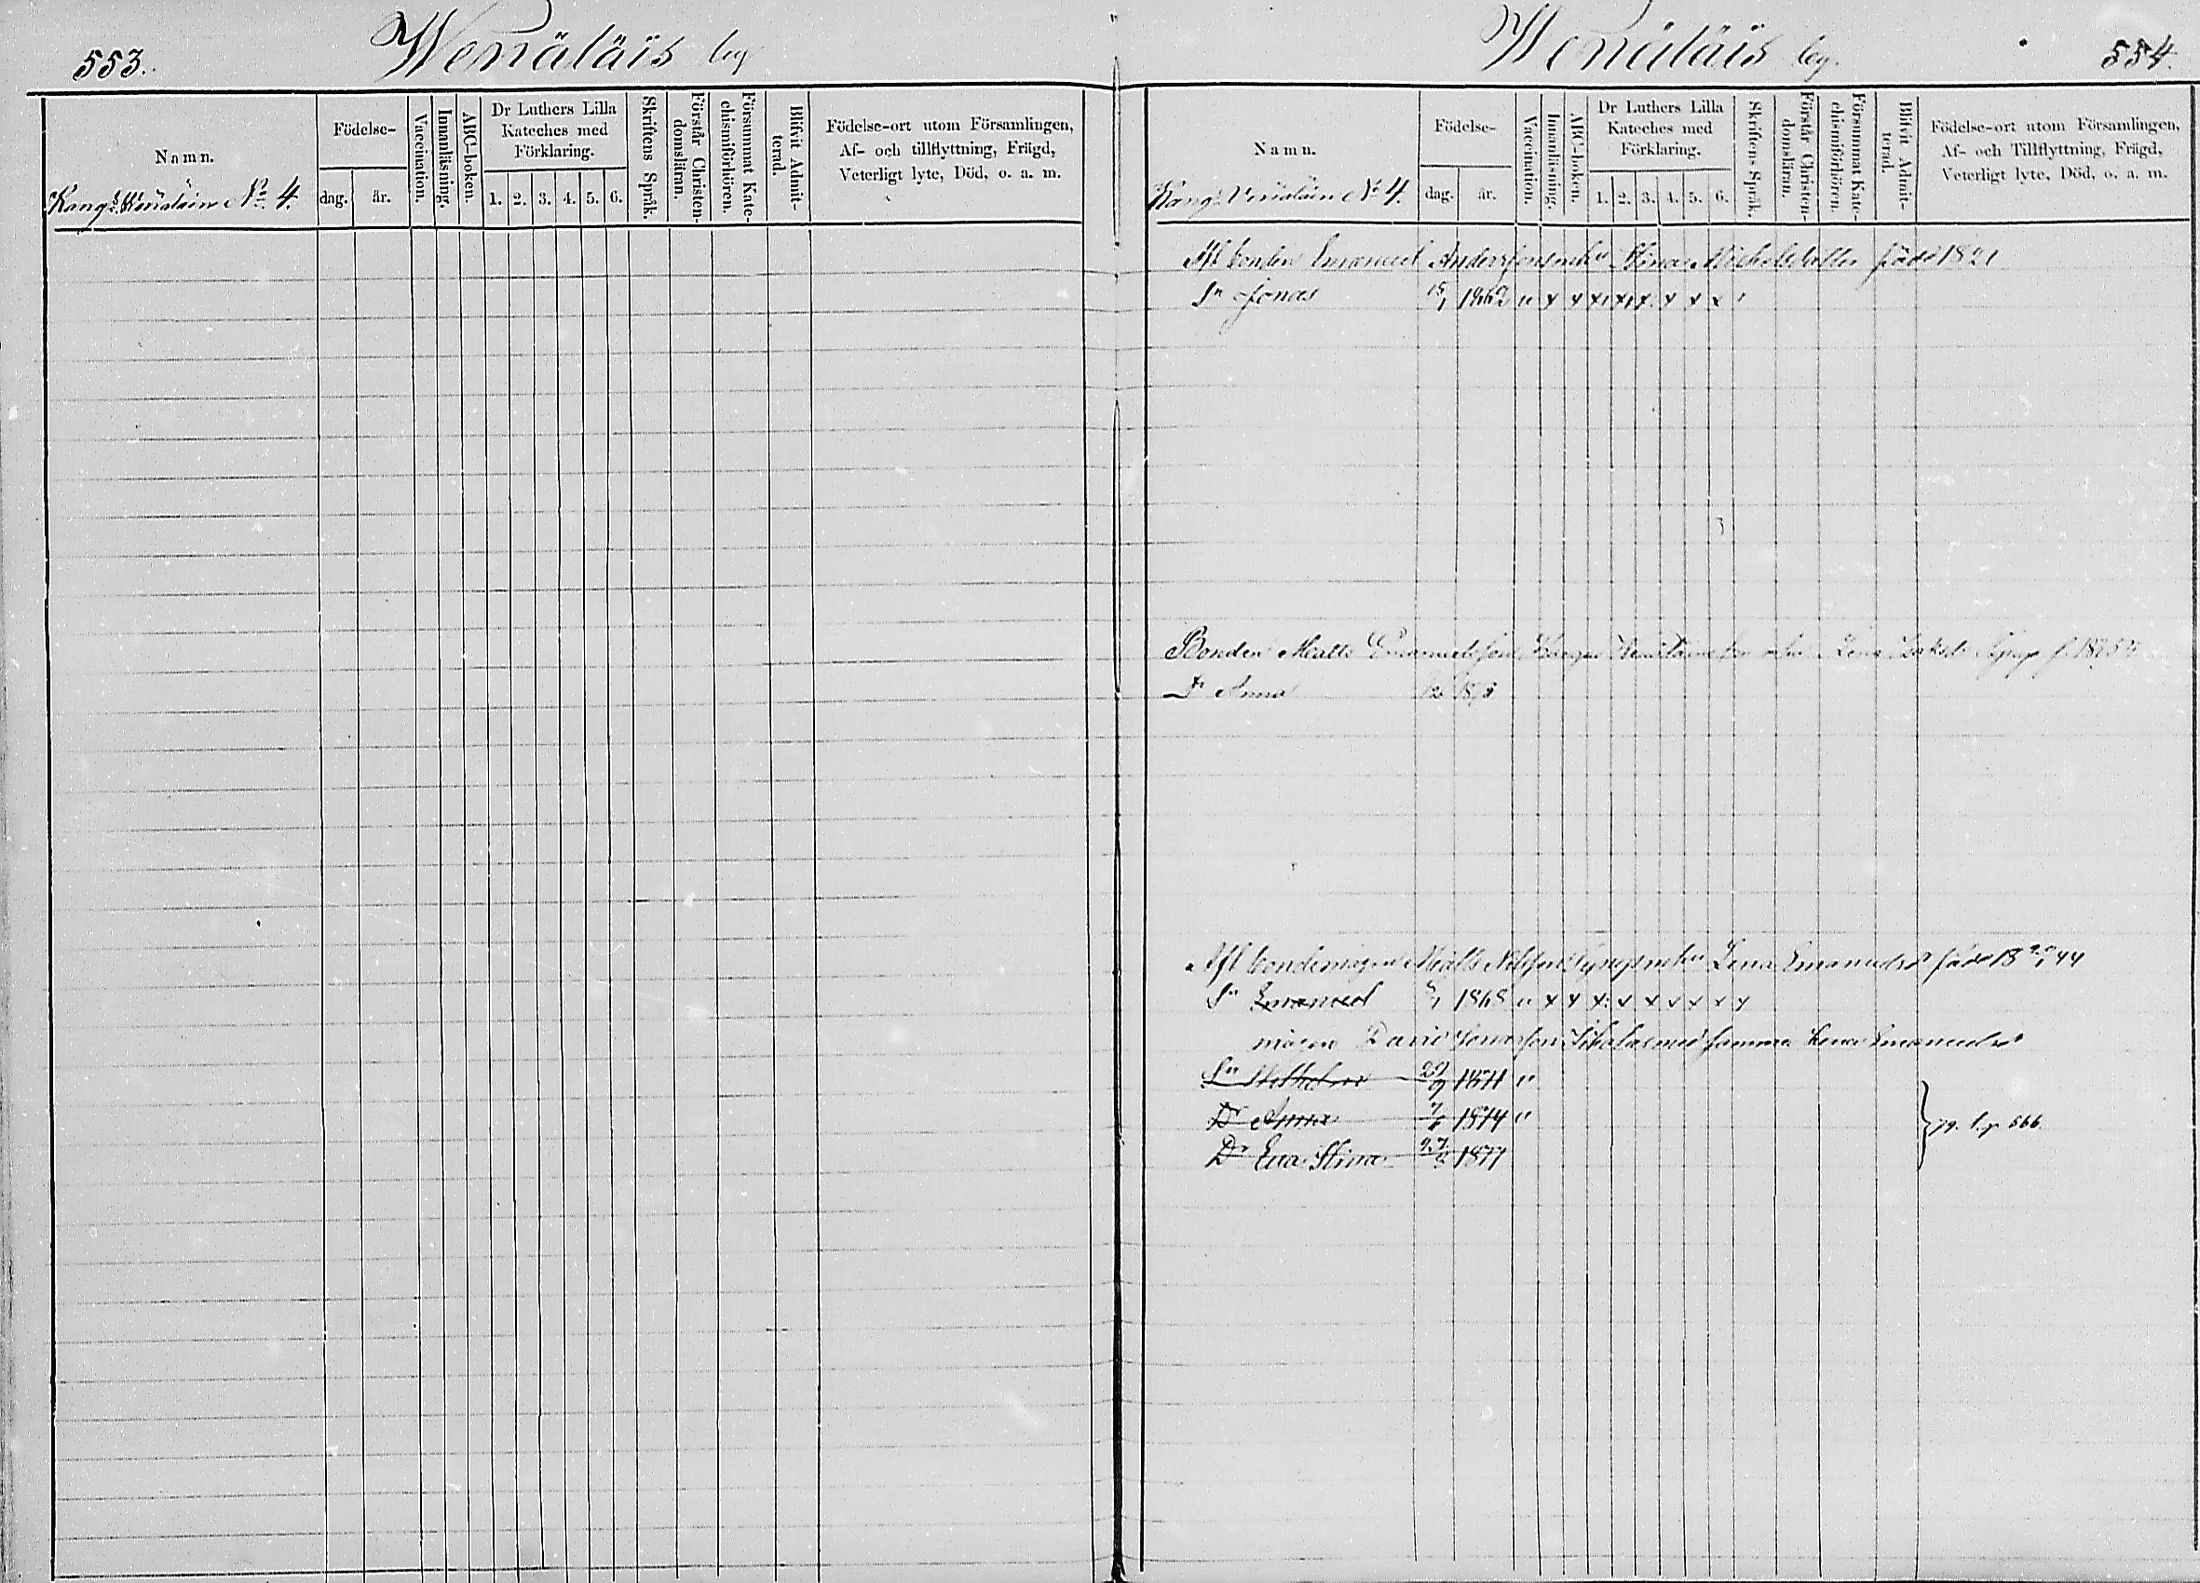 553. Wenäläis by
Namn.
Kang. Wenäläin No 4.
Födelse-
dag. år.
Vaccination.
Innanläsning.
ABC-boken.
Dr Luthers Lilla Kateches med Förklaring.
1. 2. 3. 4. 5. 6.
Skriftens Språk.
Förstår Christen-domsläran.
Försummat Kate-chismiförhören.
Blifvit Admit-terad.
Födelse-ort utom Församlingen,
Af- och tillflyttning, Frägd,
Veterligt lyte, Död, o. a. m.
Wenäläis by. 554.
Namn.
Kang. Venäläin No 4.
Födelse-
dag. år.
Vaccination.
Innanläsning.
ABC-boken.
Dr Luthers Lilla Kateches med Förklaring.
1. 2. 3. 4. 5. 6.
Skriftens Språk.
Förstår Christen-domsläran.
Försummat Kate-chismiförhören.
Blifvit Admit-terad.
Födelse-ort utom Församlingen,
Af- och Tillflyttning, Frägd,
Veterligt lyte, Död, o. a. m.
Afl bonden Emanuel Andersson Stina född 1821
Sn Jonas 15/1 1862 u x x x x x x x x
Bonden Matts Emanuelsson Lena
Dr Anna
Afl bondemågen Matts Nilsson Lena Emanuelsdr född 44
Sn Emanuel 1868 u x x x x x x x x x
mågen David Jonasson samma Lena Emanuelsdr
Sn Wilhelm 29/9 1871 u
Dr Anna 1874 u
Dr Eva Stina 1877
79. l. p. 566.